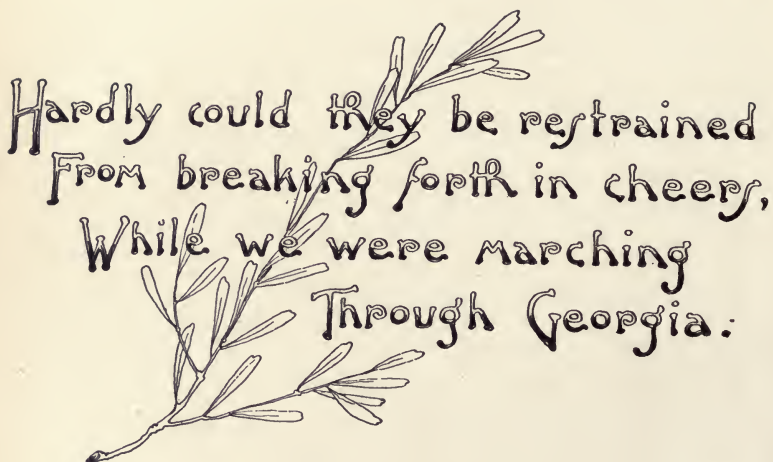 Hardly could they be restrained
From breaking forth in cheers,
While we were marching
Through Georgia.